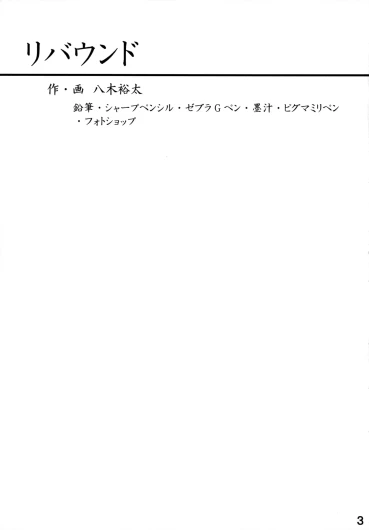 リバウンド
作・画 八木裕太
鉛筆・シャープペンシル・ゼブラGペン・墨汁・ピグマミリペン
・フォトショップ
3